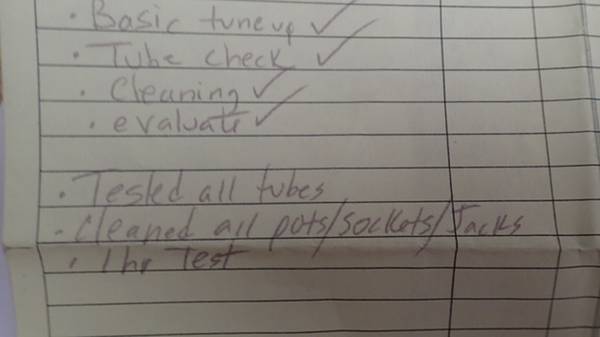 • Basic tune up ✓
• Tube check ✓
• Cleaning ✓
• evaluate ✓
• Tested all tubes
- Cleaned all pots/sockets/Jacks
• 1 hr Test